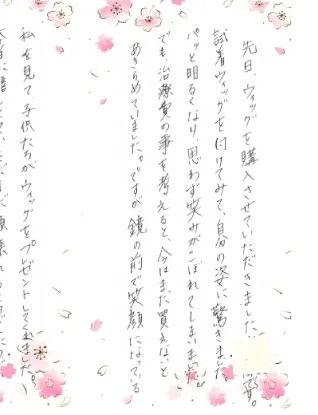 先日、ウィッグを購入させていただきました、です。
試着ウィッグを付けてみて、自分の姿に驚きました。
パッと明るくなり、思わず笑みがこぼれてしまいました。
でも、治療費の事を考えると、今はまだ買えないと
あきらめていました。ですが鏡の前で笑顔になっている
私を見て子供たちがウィッグをプレゼントしてくれました。